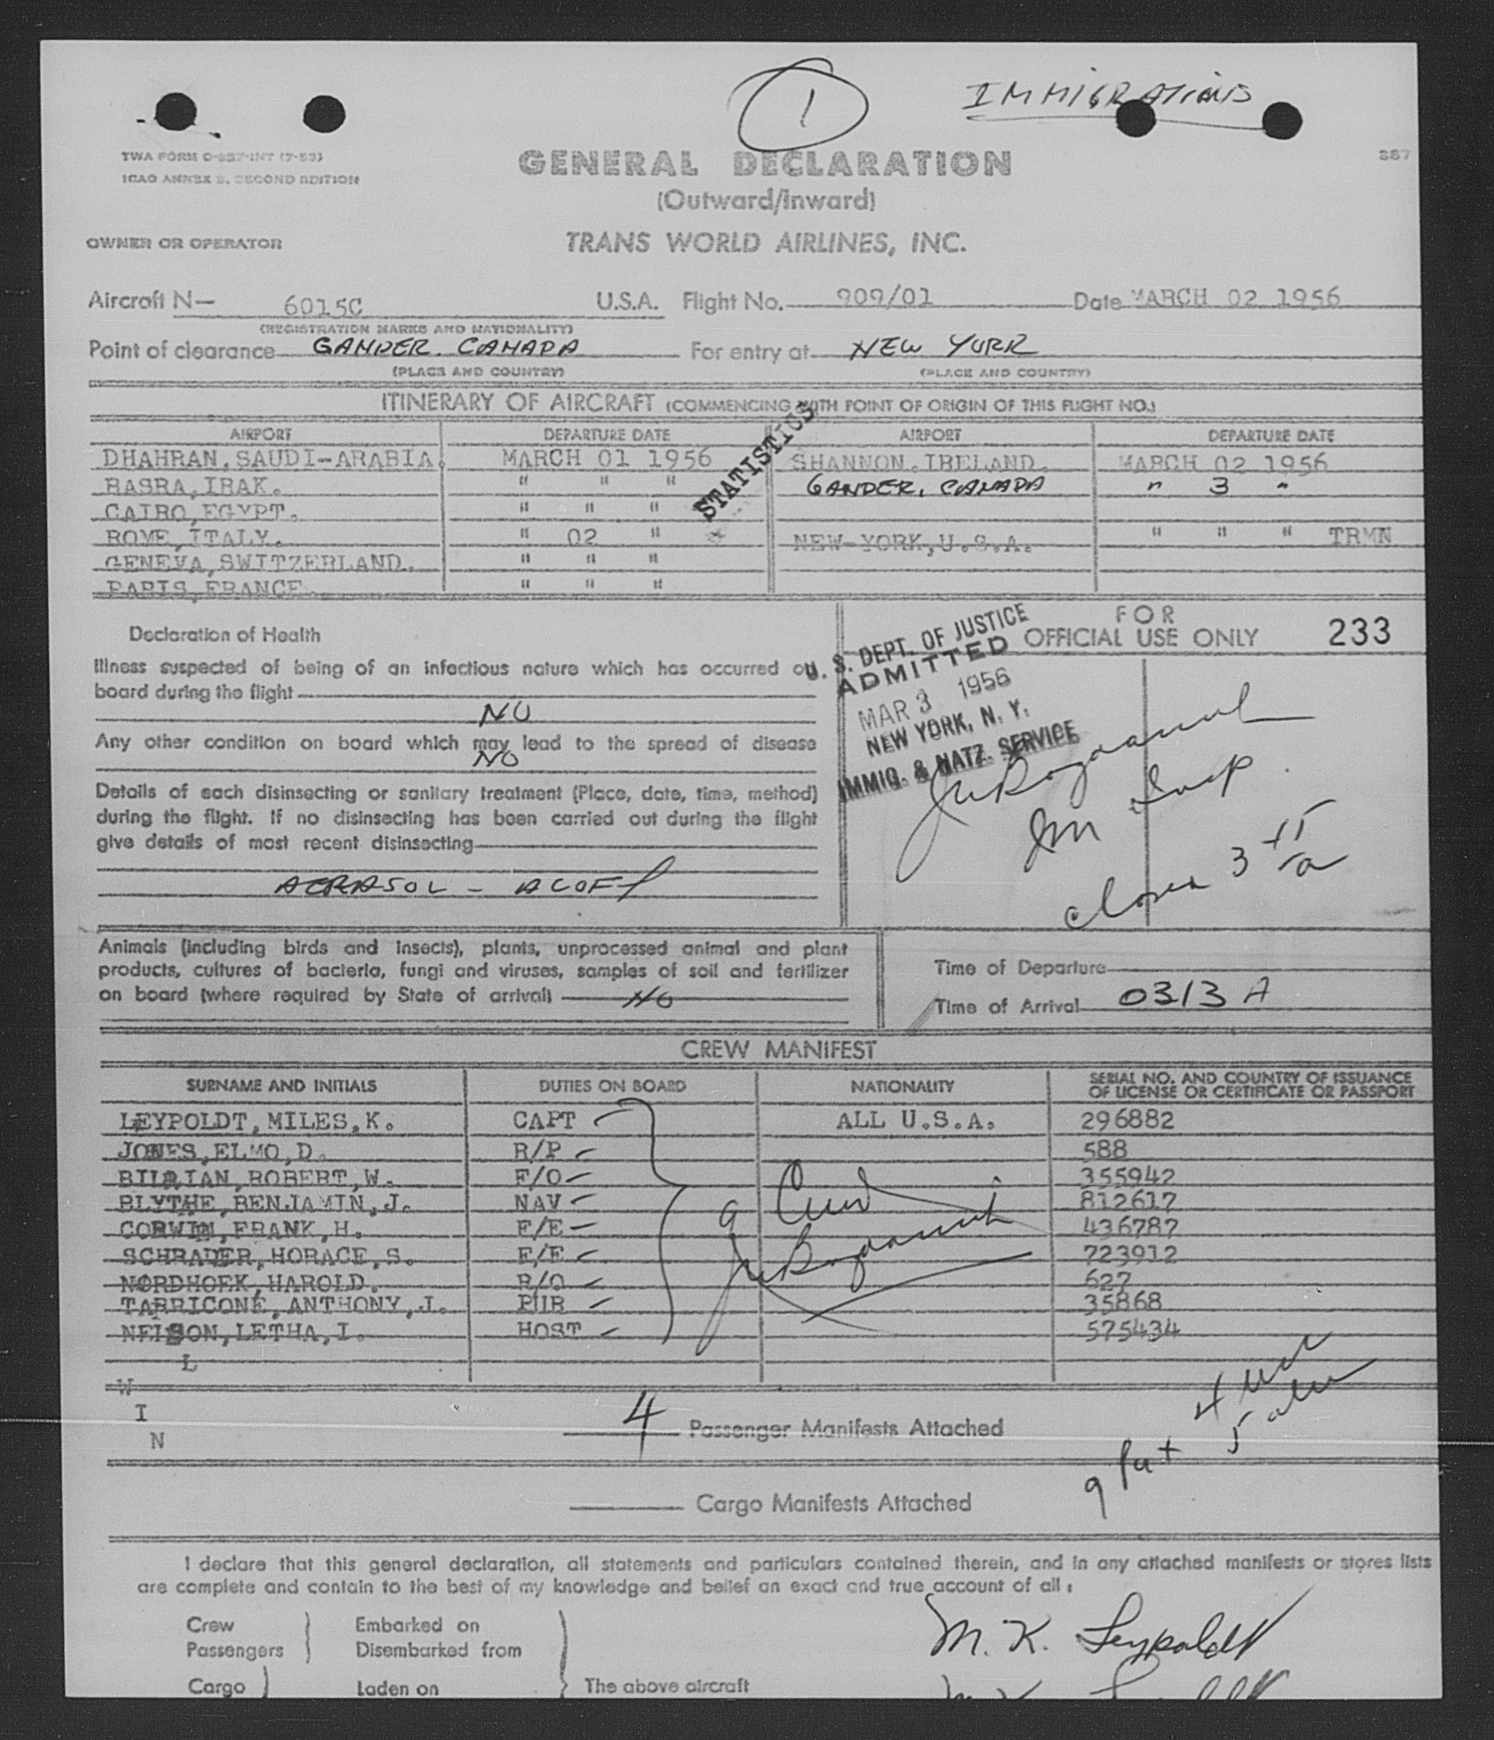 1
IMMIGRATIONS
TWA FORM O-857-INT (7-53)
ICAO ANNEX 9, SECOND EDITION
GENERAL DECLARATION
387
(Outward/Inward)
OWNER OR OPERATOR
TRANS WORLD AIRLINES, INC.
Aircraft N— 6015C U.S.A. Flight No. 909/01 Date MARCH 02 1956
(REGISTRATION MARKS AND NATIONALITY)
Point of clearance GANDER. CANADA For entry at NEW YORK
(PLACE AND COUNTRY) (PLACE AND COUNTRY)
ITINERARY OF AIRCRAFT (COMMENCING WITH POINT OF ORIGIN OF THIS FLIGHT NO.)
AIRPORT DEPARTURE DATE AIRPORT DEPARTURE DATE
DHAHRAN, SAUDI-ARABIA. MARCH 01 1956 SHANNON, IRELAND. MARCH 02 1956
BASRA, IRAK. " " " GANDER, CANADA " 3 "
CAIRO, EGYPT. " " "
ROME, ITALY. " 02 " NEW-YORK, U.S.A. " " " TRMN
GENEVA, SWITZERLAND. " " "
PARIS, FRANCE. " " "
STATISTICS
Declaration of Health
FOR
OFFICIAL USE ONLY 233
Illness suspected of being of an infectious nature which has occurred on
board during the flight
NO
Any other condition on board which may lead to the spread of disease
NO
Details of each disinsecting or sanitary treatment (Place, date, time, method)
during the flight. If no disinsecting has been carried out during the flight
give details of most recent disinsecting
AERASOL - ACOFT
U. S. DEPT. OF JUSTICE
ADMITTED
MAR 3 1956
NEW YORK, N. Y.
IMMIG. & NATZ. SERVICE
Imm Insp
Closed 3 15 a
Animals (including birds and insects), plants, unprocessed animal and plant
products, cultures of bacteria, fungi and viruses, samples of soil and fertilizer
on board (where required by State of arrival) NO
Time of Departure
Time of Arrival 0313 A
CREW MANIFEST
SURNAME AND INITIALS DUTIES ON BOARD NATIONALITY SERIAL NO. AND COUNTRY OF ISSUANCE
OF LICENSE OR CERTIFICATE OR PASSPORT
LEYPOLDT, MILES, K. CAPT ALL U.S.A. 296882
JONES, ELMO, D. R/P 588
BILRIAN, ROBERT, W. F/O 355942
BLYTHE, BENJAMIN, J. NAV 812617
CORWIN, FRANK, H. F/E 436787
SCHRADER, HORACE, S. F/E 723912
NORDHOEK, HAROLD. R/O 627
TARRICONE, ANTHONY, J. PUR 35868
NELSON, LETHA, I. HOST 575434
9 Crew
L
W
I
N
4 Passenger Manifests Attached
Cargo Manifests Attached
I declare that this general declaration, all statements and particulars contained therein, and in any attached manifests or stores lists
are complete and contain to the best of my knowledge and belief an exact and true account of all:
Crew Embarked on
Passengers Disembarked from
M. K. Leypoldt
Cargo Laden on The above aircraft